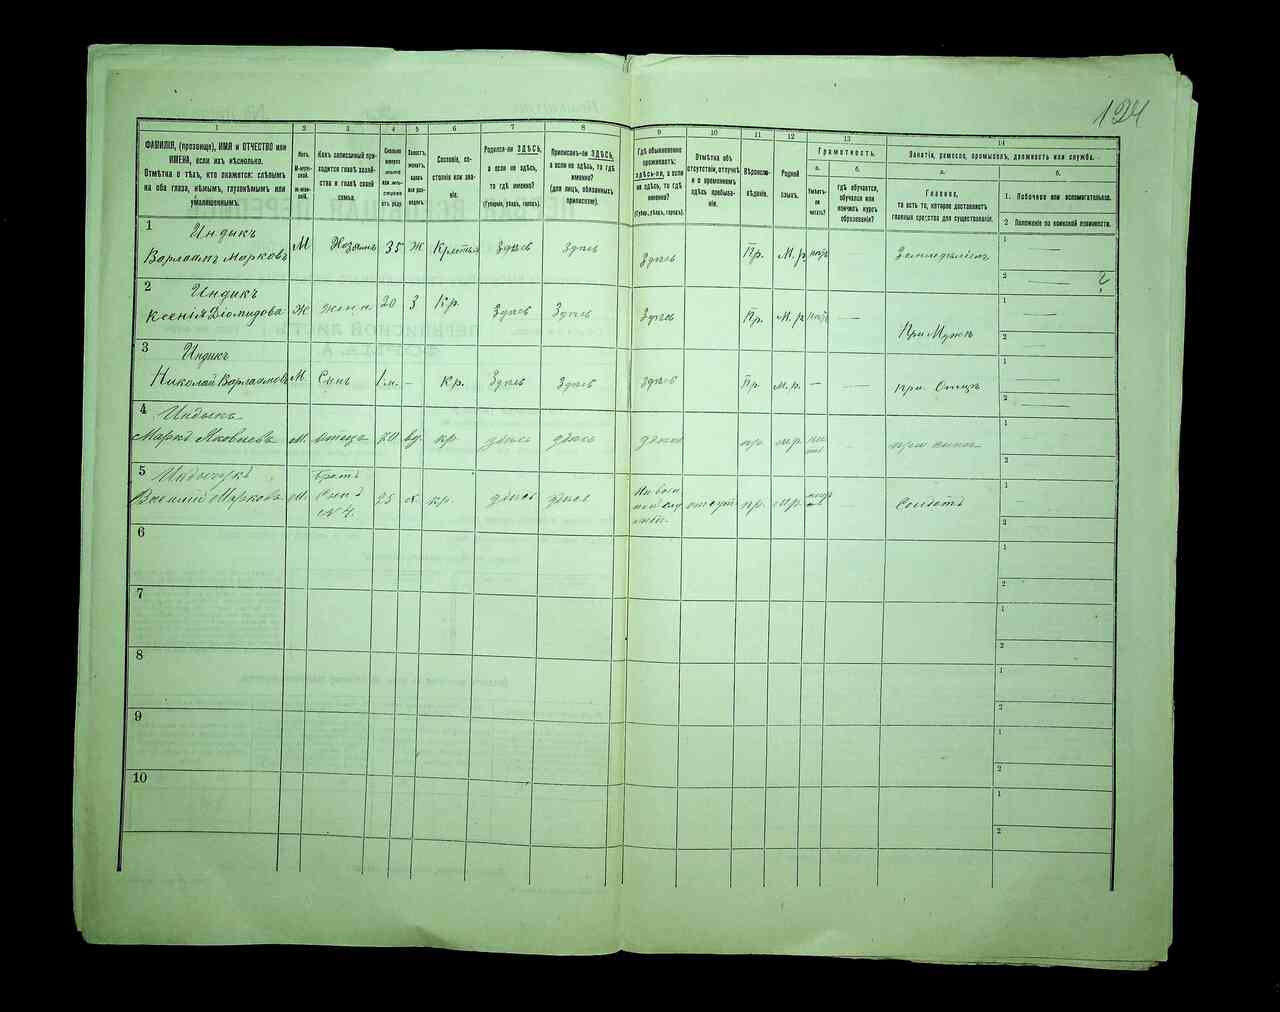 124
1 2 3 4 5 6 7 8 9 10 11 12 13 14
ФАМИЛІЯ, (прозвище), ИМЯ и ОТЧЕСТВО или
ИМЕНА, если ихъ нѣсколько.
Отмѣтка о тѣхъ, кто окажется: слѣпымъ
на оба глаза, нѣмымъ, глухонѣмымъ или
умалишеннымъ.
Полъ.
Какъ записанный при-
ходится главѣ хозяй-
ства и главѣ своей
семьи.
Сколько
Сословіе, со-
стояніе или зва-
ніе.
Родился-ли ЗДѢСЬ,
а если не здѣсь,
то гдѣ именно?
(Губернія, уѣздъ, городъ).
Приписанъ-ли ЗДѢСЬ,
а если не здѣсь, то гдѣ
именно?
(для лицъ, обязанныхъ
припискою).
Гдѣ обыкновенно
проживаетъ:
здѣсь-ли, а если
не здѣсь, то гдѣ
именно?
(Губерн., уѣздъ, городъ).
Отмѣтка объ
отсутствіи, отлучкѣ
и о временномъ
здѣсь пребыва-
ніи.
Вѣроиспо-
вѣданіе.
Родной
языкъ.
Грамотность.
а.
Умѣетъ-
ли
читать?
б.
гдѣ обучается,
обучался или
кончилъ курсъ
образованія?
Занятіе, ремесло, промыселъ, должность или служба.
а.
Главное,
то есть то, которое доставляетъ
главныя средства для существованія.
б.
1. Побочное или вспомогательное.
2 Положеніе по воинской повинности.
1
Индыкъ
Варлаамъ Марковъ М Хозяинъ 35 Ж Здѣсь Здѣсь Здѣсь Пр. М.р. — Земледѣліемъ
1 —
2 —
2
Индикъ
Ксенія Діомидова Ж жена 20 З Кр. Здѣсь Здѣсь Здѣсь Пр. М.р. — При Мужѣ
1 —
2 —
3
Индик
Николай Варлаамовъ М. Сынъ 1 м. — Кр. Здѣсь Здѣсь здѣсь Пр. М.р. — — при Отцѣ
1 —
2 —
4 Индыкъ
Маркъ Яковлевъ М. отецъ 70 вд. кр. здѣсь здѣсь здѣсь пр. мр. — при сынѣ
1 —
2 —
5
Братъ
Василій Марковъ М. Сынъ 25 кр. здѣсь здѣсь отсут. пр. мр. — Солдатъ
№ 4.
1 —
2 —
6
1
2
7
1
2
8
1
2
9
1
2
10
1
2